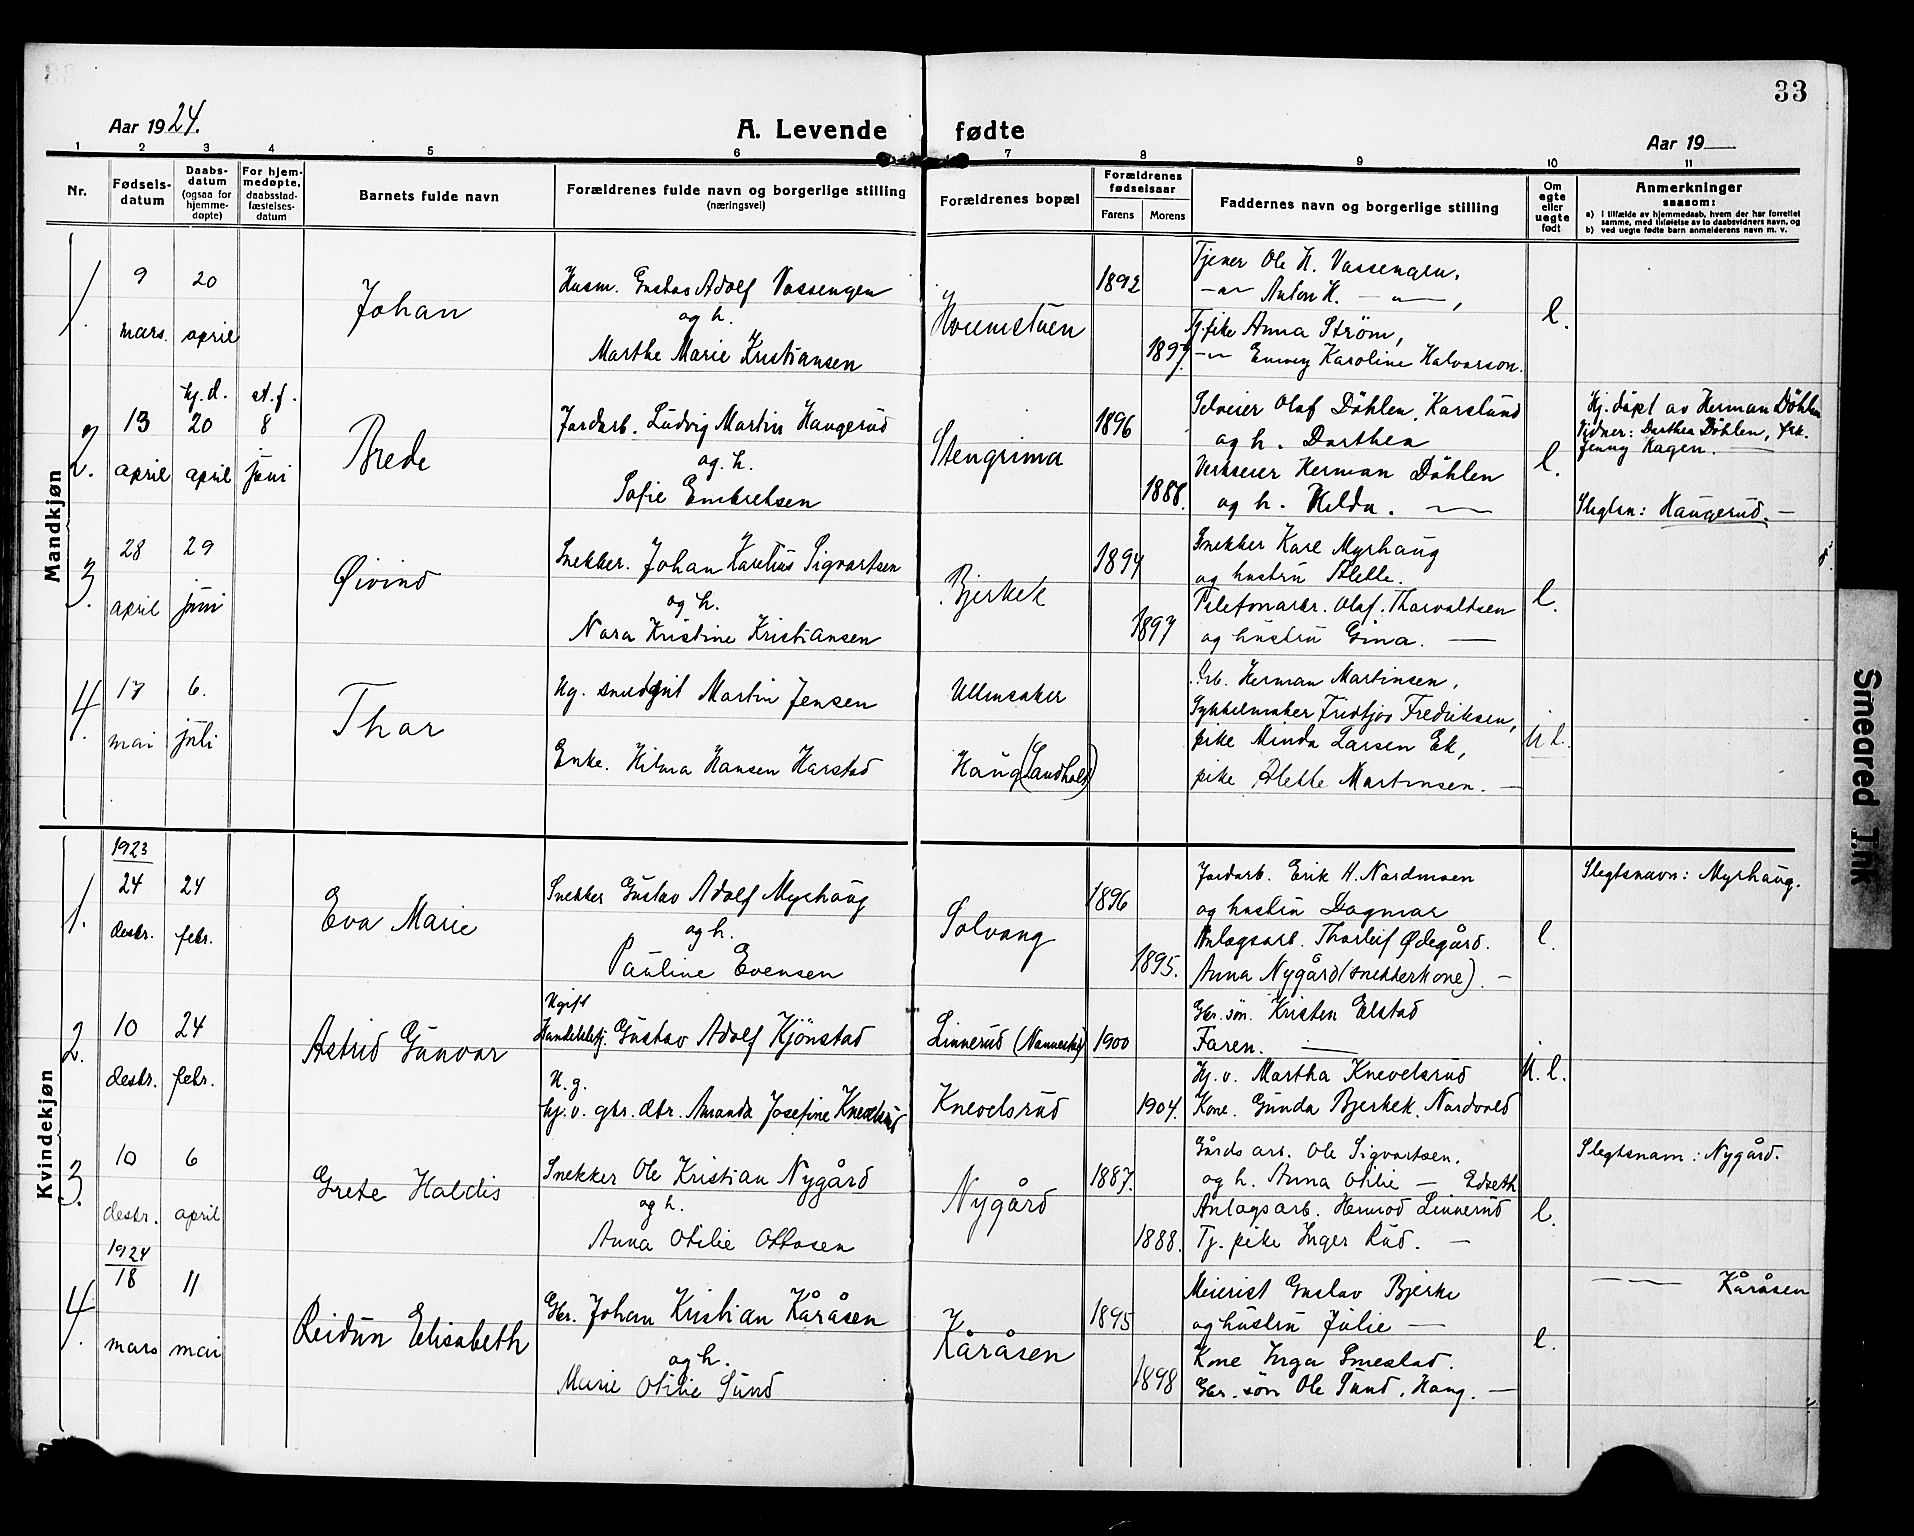 33
Aar 1924.
A. Levende fødte
Aar 19
1 2 3 4 5 6 7 8 9 10 11
Nr.
Fødsels-
datum
Daabs-
datum
(ogsaa for
hjemme-
døpte)
For hjem-
medøpte,
daabsstad-
fæstelses-
datum
Barnets fulde navn
Forældrenes fulde navn og borgerlige stilling
(næringsvei)
Forældrenes bopæl
Forældrenes
fødselsaar
Farens Morens
Faddernes navn og borgerlige stilling
Om
ægte
eller
uegte
født
Anmerkninger
saasom:
a) i tilfælde av hjemmedaab, hvem der har forrettet
samme, med tilføielse av to daabsvidners navn, og
b) ved uegte fødte barn anmelderens navn m. v.
Mandkjøn
1.
9
mars.
20
april
Johan
Husm. Gustav Adolf Vassengen
og h.
Marthe Marie Kristiansen
1892
1897.
Tjener Ole H. Vassengen,
Anton H.
Tj. pike Anna Strøm,
Emmy Karoline Halvorson.
l.
2.
13
april
hj.d.
20
april
st.f.
8
juni
Brede
Jordarb. Ludvig Martin Haugerud
og. h.
Sofie Embretsen
Stengrima
1896
1888.
Selveier Olaf Døhlen, Karslund
og h. Dorthea
Verkseier Herman Döhlen
og h. Hilda.
l.
Hj. döpt av Herman Döhlen
Vidner: Dorthea Döhlen, frk.
Jenny Hagen.
Slegtsn: Haugerud.
3.
28
april
29
juni
Øivind
Snekker. Johan Karelius Sigvartsen
og h.
Nora Kristine Kristiansen
Bjerkek
1894
1897
Snekker Karl Myrhaug
og hustru Alette.
Telefonarb. Olaf Thorvaldsen
og hustru Gina.
l.
4.
17
mai
6.
juli
Thor
Ug. Martin Jensen
Enke. Hilma Hansen Harstad
Ullensaker
Haug (Sandholt)
Arb. Herman Martinsen,
Sykkelmaker Fridtjov Fredriksen,
pike Minda Larsen Ek,
pike Alette Martinsen.
U l.
Kvindekjøn
1.
1923
24
desbr.
24
febr.
Eva Marie
Snekker Gustav Adolf Myrhaug
og h.
Pauline Evensen
Solvang
1896
1895.
Jordarb. Erik H. Nordmoen
og hustru Dagmar
Anlagsarb. Thorleif Ødegård.
Anna Nygård (snekkerkone).
l.
Slegtsnavn: Myrhaug.
2.
10
desbr.
24
febr.
Astrid Gunvor
Ugift
Handelsbetj. Gustav Adolf Kjönstad
U. g.
hj. v. gbr. dtr. Amanda Josefine Knevelsrud
Linnerud (Nannestad)
Knevelsrud
1900
1904.
Gbr. søn. Kristen Elstad
Faren.
Hj. v. Martha Knevelsrud
Kone. Gunda Bjerkek. Nordvold
U. l.
3.
10
desbr.
6
april
Grete Haldis
Snekker Ole Kristian Nygård
og h.
Anna Otilie Ottosen
Nygård
1887.
1888.
Gårdsarb. Ole Sigvartsen.
og h. Anna Otilie — Edseth
Anlagsarb. Hermod Linnerud
Tj. pike Inger Rud.
l.
Slegtsnam: Nygård.
4.
1924
18
mars
11
mai
Reidun Elisabeth
Gbr. Johan Kristian Kåråsen
og h.
Marie Otilie Sund
Kåråsen
1895
1898
Meierist Gustav Bjerke
og hustru Julie —
Kone Inga Smestad.
Gbr. søn Ole Sund, Haug.
l.
— — Kåråsen
Smeared Ink